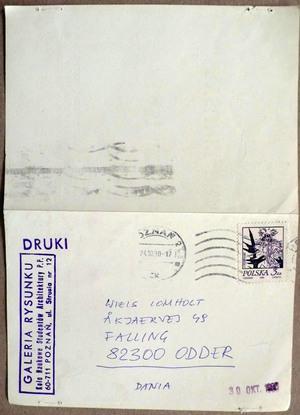 DRUKI
GALERIA RYSUNKU
Koło Naukowe Studentów Architektury P.P.
60-711 POZNAŃ, ul. Strusia nr 12
POZNAŃ 2
POLSKA 3
NIELS LOMHOLT
ÅKJAERVEJ 48
FALLING
82300 ODDER
DANIA
30 OKT.